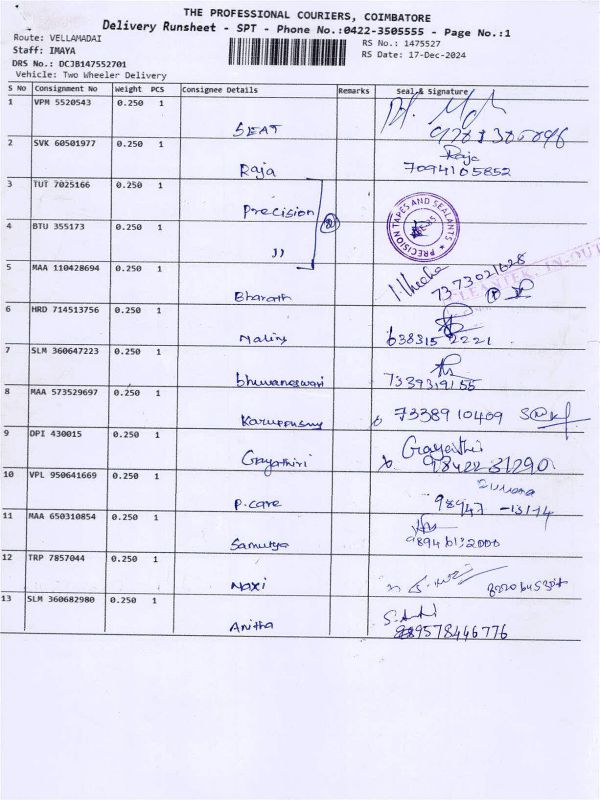 THE PROFESSIONAL COURIERS, COIMBATORE
Delivery Runsheet - SPT - Phone No.:0422-3505555 - Page No.:1
Route: VELLAMADAI
RS No.: 1475527
Staff: IMAYA
RS Date: 17-Dec-2024
DRS No.: DCJB147552701
Vehicle: Two Wheeler Delivery
S No Consignment No Weight PCS Consignee Details Remarks Seal & Signature
1 VPM 5520543 0.250 1
SEAT
2 SVK 60501977 0.250 1
Raja Raja
7094105852
3 TUT 7025166 0.250 1
Precision
PRECISION TAPES AND SEALANTS
4 BTU 355173 0.250 1
"
5 MAA 110428694 0.250 1
Bharath 7373021628
6 HRD 714513756 0.250 1
Malini 638315 2221
7 SLM 360647223 0.250 1
bhuvaneswari 7339319155
8 MAA 573529697 0.250 1
7338910409
9 DPI 430015 0.250 1
Gayathiri Gayathiri
98422 31290
10 VPL 950641669 0.250 1
P.care 98947 -13174
11 MAA 650310854 0.250 1
12 TRP 7857044 0.250 1
13 SLM 360682980 0.250 1
Anitha 9578446776